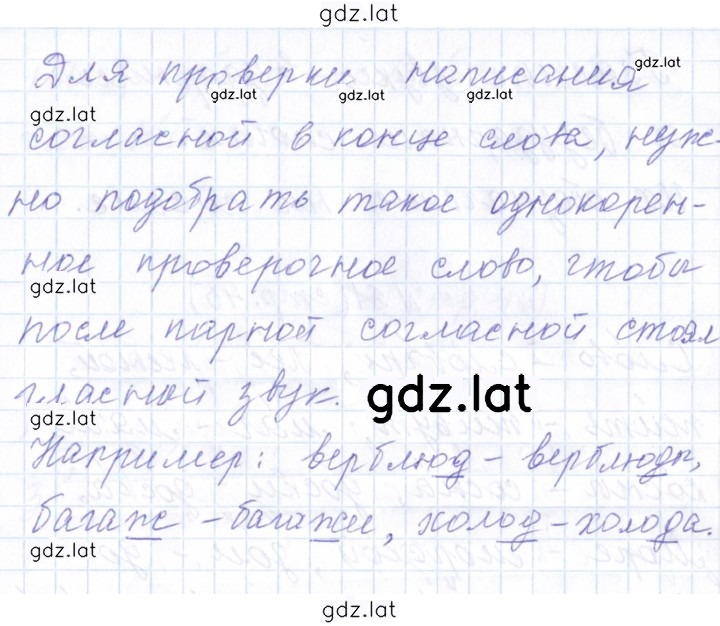 gdz.lat
Для проверки написания
gdz.lat
gdz.lat gdz.lat gdz.lat
gdz.lat
согласной в конце слова, нуж-
но подобрать такое однокорен-
ное проверочное слово, чтобы
gdz.lat
после парной согласной стоял
гласной звук.
gdz.lat
gdz.lat
Например: верблюд - верблюды,
багаж - багажи, холод - холода.
gdz.lat
gdz.lat